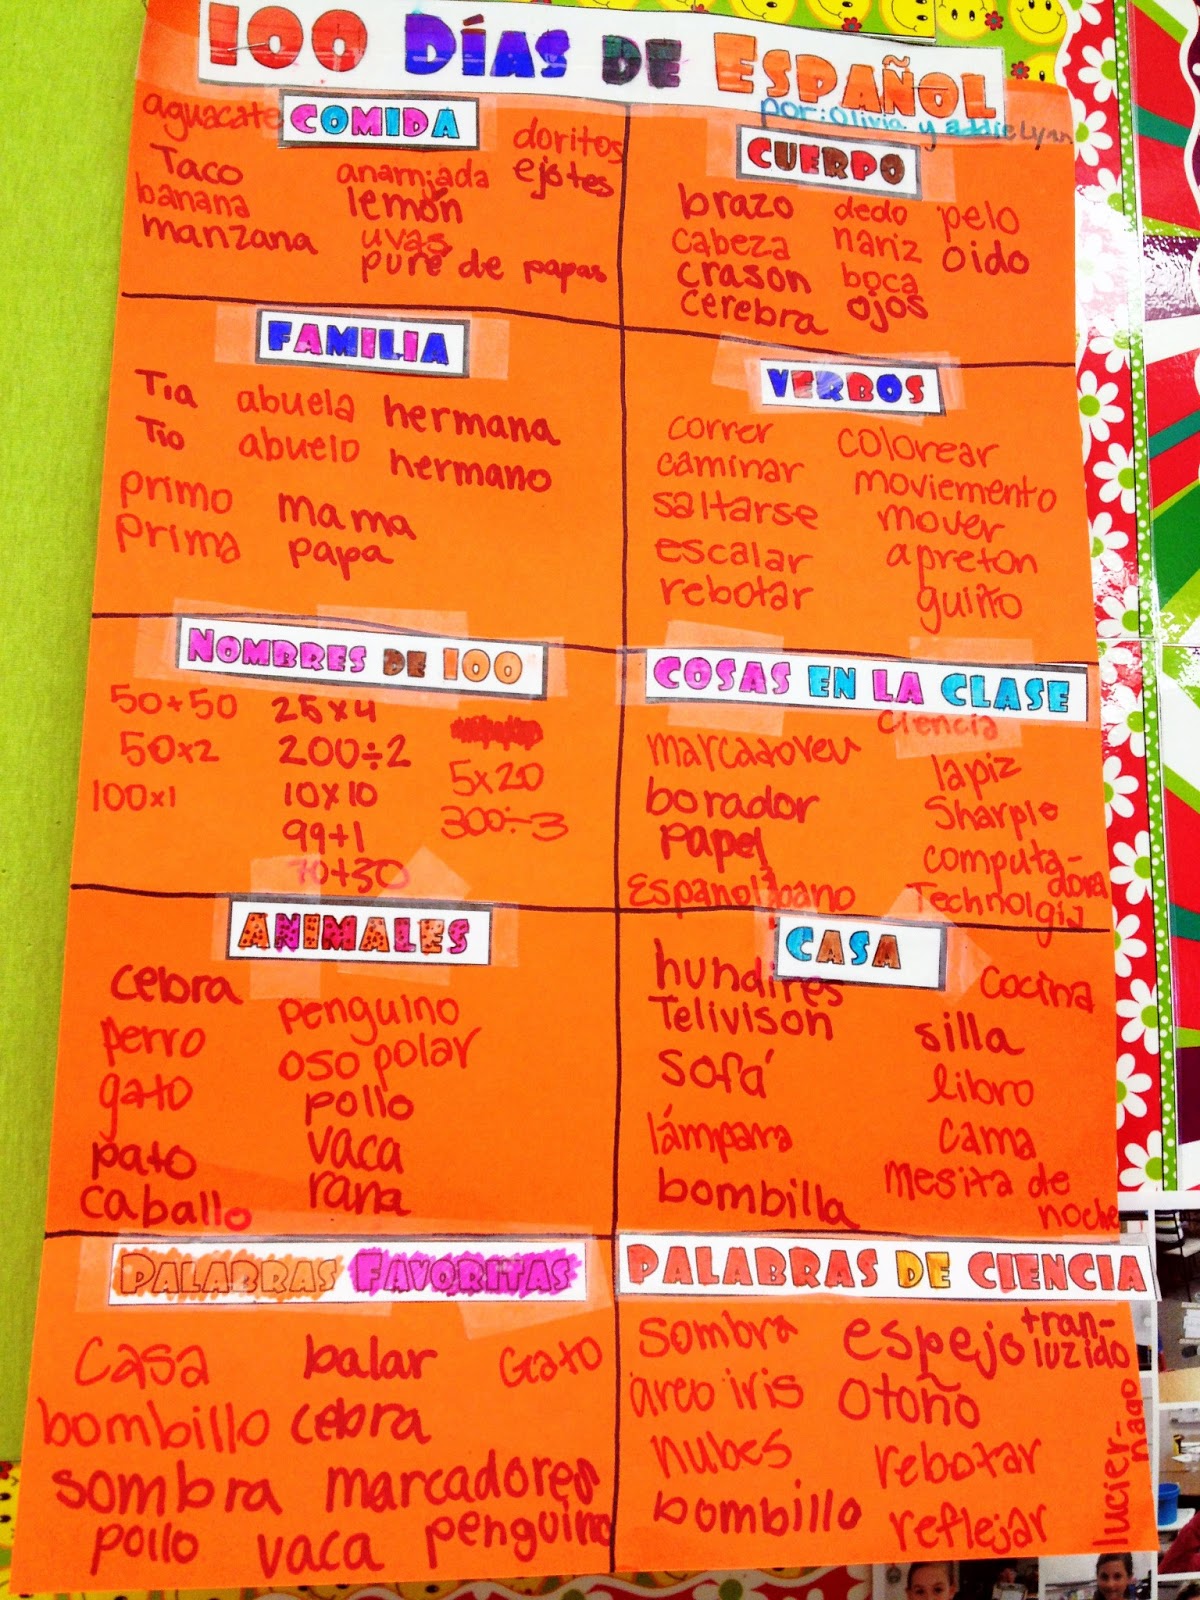 100 Días de Español
por: Olivia y addieLynn
COMIDA
aguacate
doritos
Taco
anarnjada
ejotes
banana
lemón
manzana
uvas
pure de papas
CUERPO
brazo dedo pelo
cabeza nariz oido
crason boca
cerebra ojos
FAMILIA
Tia abuela hermana
Tio abuelo hermano
primo mama
prima papa
VERBOS
correr colorear
caminar moviemento
saltarse mover
escalar apreton
rebotar guiño
NOMBRES DE 100
50+50 25x4
50x2 200÷2 5x20
100x1 10x10 300÷3
99+1
70+30
COSAS EN LA CLASE
ciencia
lapiz
borador Sharpie
papel computa-
dora
ANIMALES
cebra penguino
perro oso polar
gato pollo
pato vaca
caballo rana
CASA
hundires cocina
Telivison silla
sofá libro
lámpara cama
bombilla mesita de
noche
PALABRAS FAVORITAS
casa balar Gato
bombillo cebra
sombra marcadores
pollo vaca penguino
PALABRAS DE CIENCIA
sombra espejo tran-
luzido
arco iris otoño
nubes rebotar
bombillo reflejar
lucier-
nago